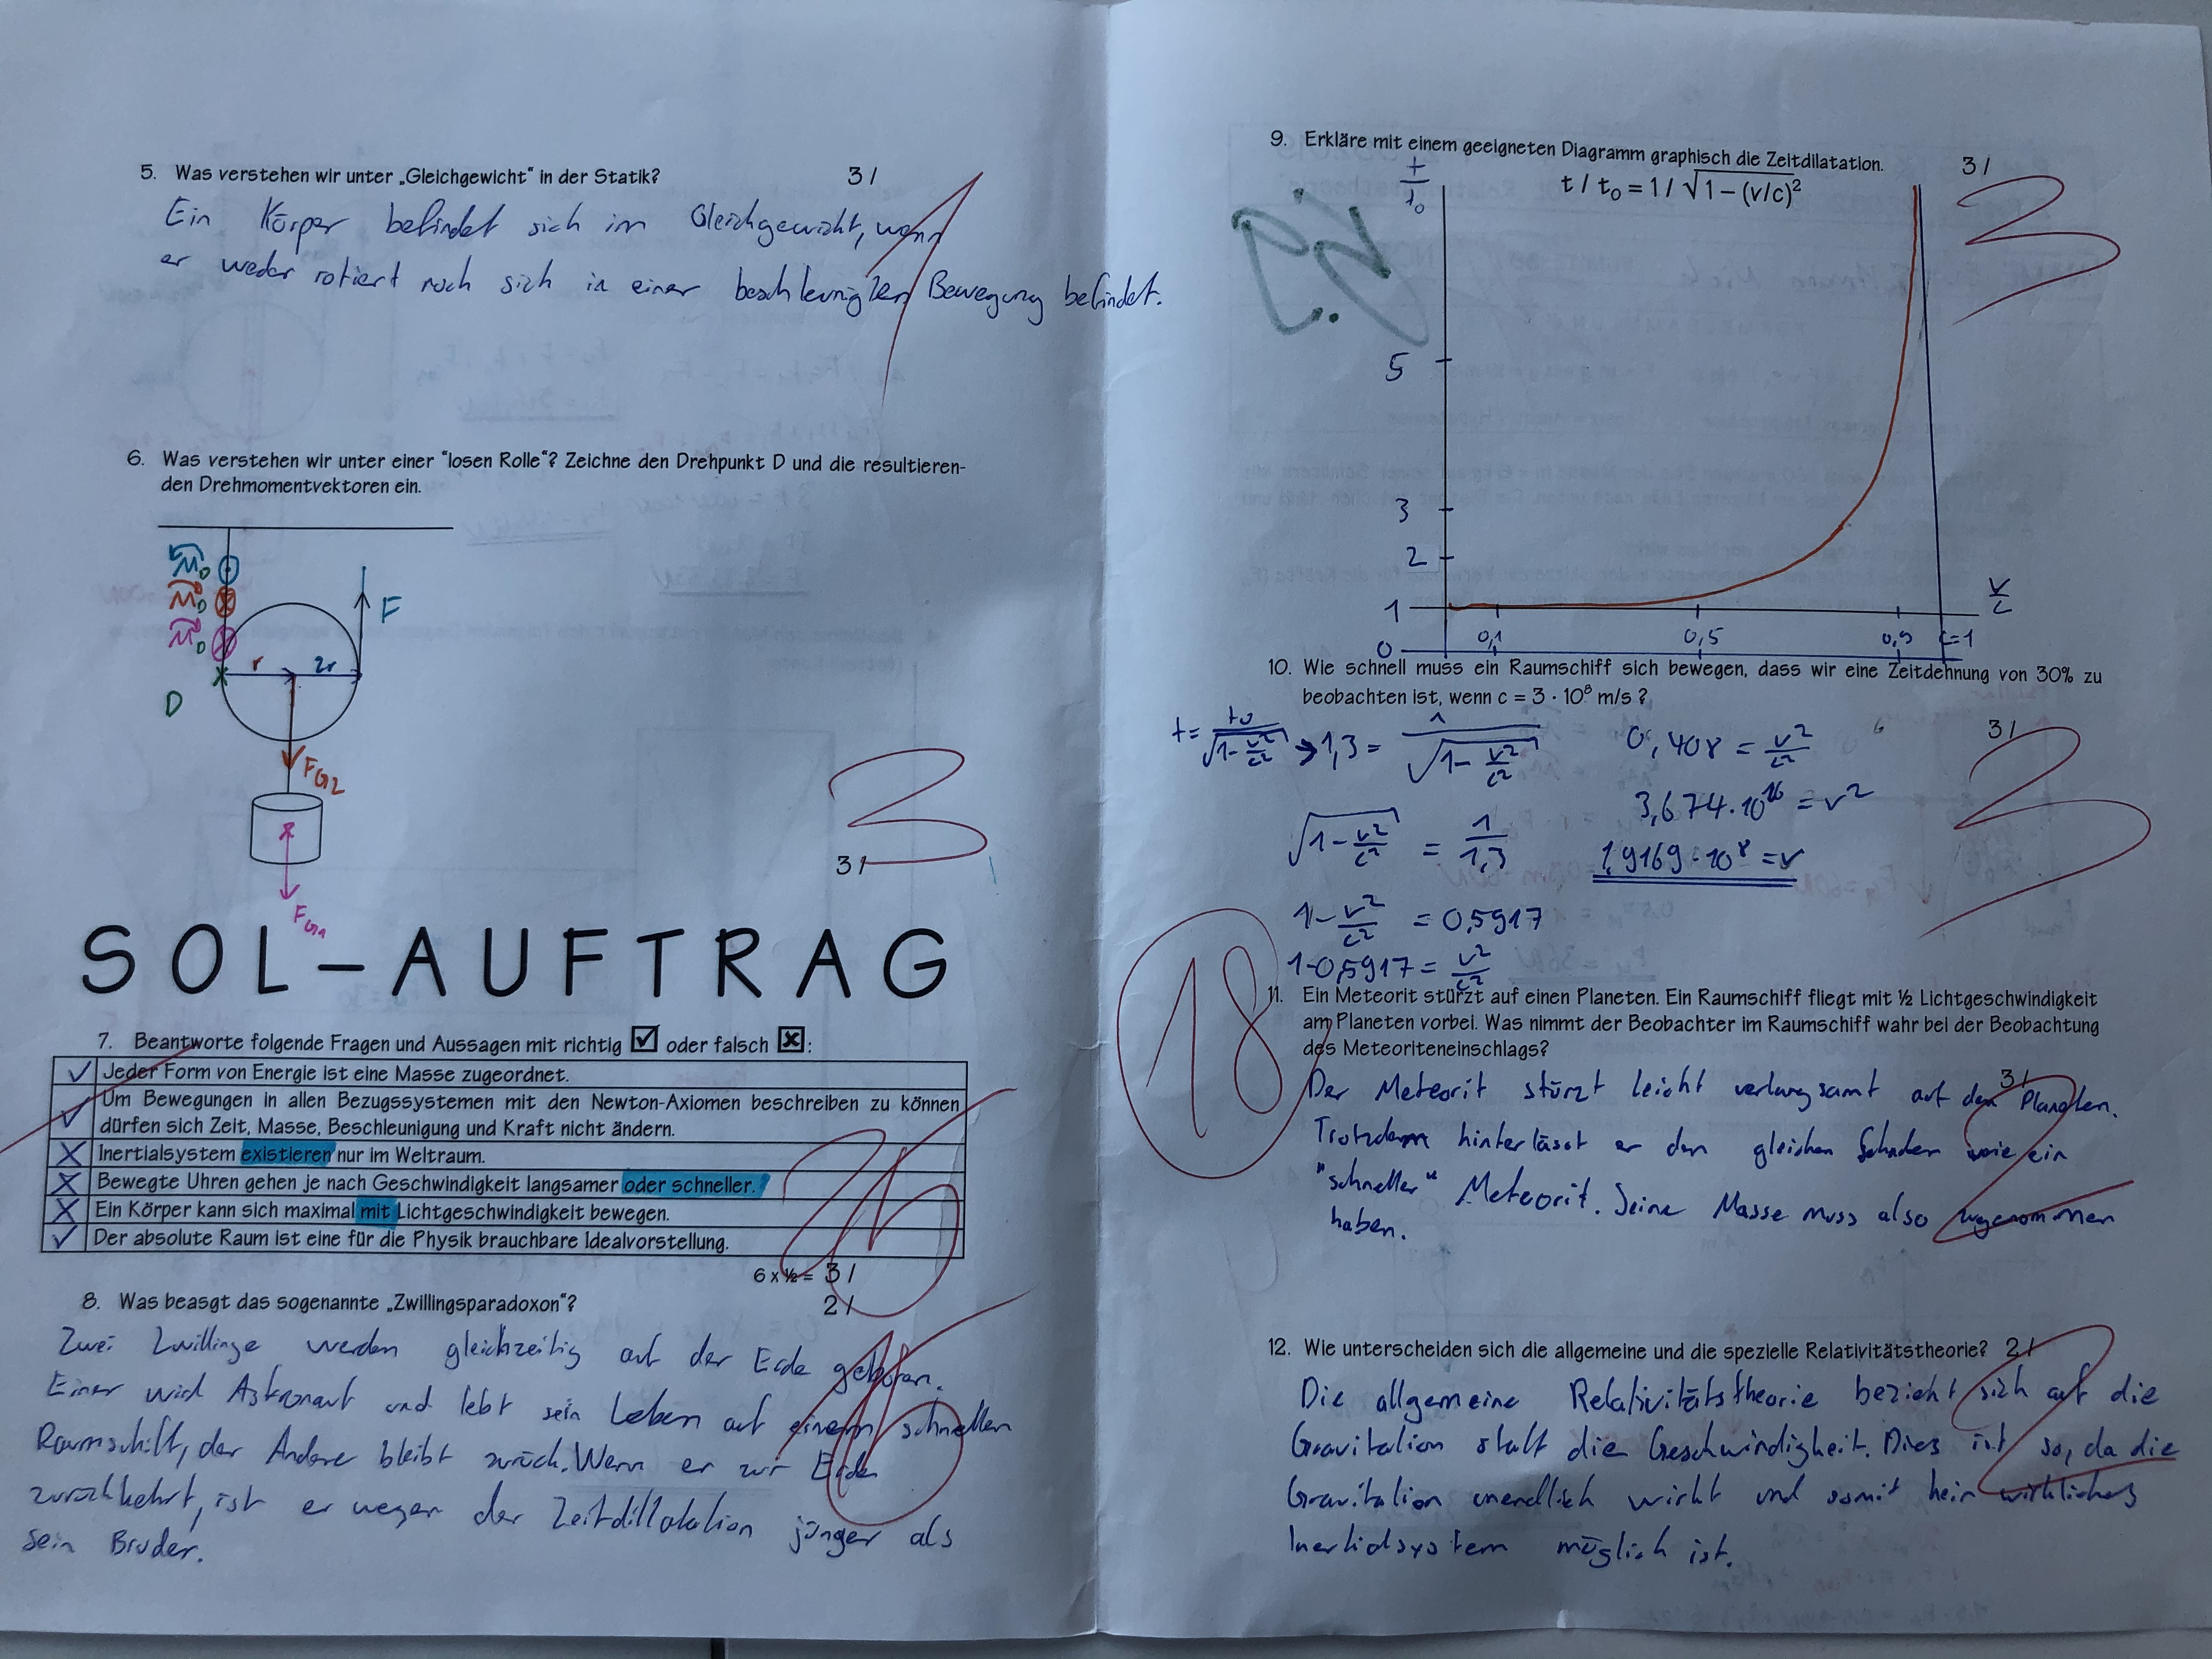 5. Was verstehen wir unter „Gleichgewicht“ in der Statik? 3 /
Ein Körper befindet sich im Gleichgewicht, wenn
er weder rotiert noch sich in einer beschleunigten Bewegung befindet.
1
6. Was verstehen wir unter einer "losen Rolle"? Zeichne den Drehpunkt D und die resultieren-
den Drehmomentvektoren ein.
M D
M D
M D
F
r 2r
D
FG2
FG1
3 /
3
SOL-AUFTRAG
7. Beantworte folgende Fragen und Aussagen mit richtig ☑ oder falsch ☒:
✓ Jeder Form von Energie ist eine Masse zugeordnet.
✓ Um Bewegungen in allen Bezugssystemen mit den Newton-Axiomen beschreiben zu können
dürfen sich Zeit, Masse, Beschleunigung und Kraft nicht ändern.
X Inertialsystem existieren nur im Weltraum.
X Bewegte Uhren gehen je nach Geschwindigkeit langsamer oder schneller.
X Ein Körper kann sich maximal mit Lichtgeschwindigkeit bewegen.
✓ Der absolute Raum ist eine für die Physik brauchbare Idealvorstellung.
6 x ½ = 3 /
8. Was beasgt das sogenannte „Zwillingsparadoxon“? 2 /
Zwei Zwillinge werden gleichzeitig auf der Erde geboren.
Einer wird Astronaut und lebt sein Leben auf einem schnellen
Raumschiff, der Andere bleibt zurück. Wenn er zur Erde
zurückkehrt, ist er wegen der Zeitdillatation jünger als
sein Bruder.
9. Erkläre mit einem geeigneten Diagramm graphisch die Zeitdilatation. 3 /
t / t₀ = 1 / √1 – (v/c)²
3
t/t₀
5
3
2
1
0
0,1 0,5 0,9 c=1
v/c
10. Wie schnell muss ein Raumschiff sich bewegen, dass wir eine Zeitdehnung von 30% zu
beobachten ist, wenn c = 3 · 10⁸ m/s ?
3 /
3
t = t₀/√(1-v²/c²) → 1,3 = 1/√(1-v²/c²)
√(1-v²/c²) = 1/1,3
1-v²/c² = 0,5917
1-0,5917 = v²/c²
0,408 = v²/c²
3,674·10¹⁶ = v²
1,9169·10⁸ = v
18
11. Ein Meteorit stürzt auf einen Planeten. Ein Raumschiff fliegt mit ½ Lichtgeschwindigkeit
am Planeten vorbei. Was nimmt der Beobachter im Raumschiff wahr bei der Beobachtung
des Meteoriteneinschlags?
3 /
Der Meteorit stürzt leicht verlangsamt auf den Planeten.
Trotzdem hinterlässt er den gleichen Schaden wie ein
"schneller" Meteorit. Seine Masse muss also zugenommen
haben.
2
12. Wie unterscheiden sich die allgemeine und die spezielle Relativitätstheorie? 2 /
Die allgemeine Relativitätstheorie bezieht sich auf die
Gravitation statt die Geschwindigkeit. Dies ist so, da die
Gravitation unendlich wirkt und somit kein wirkliches
Inertialsystem möglich ist.
2